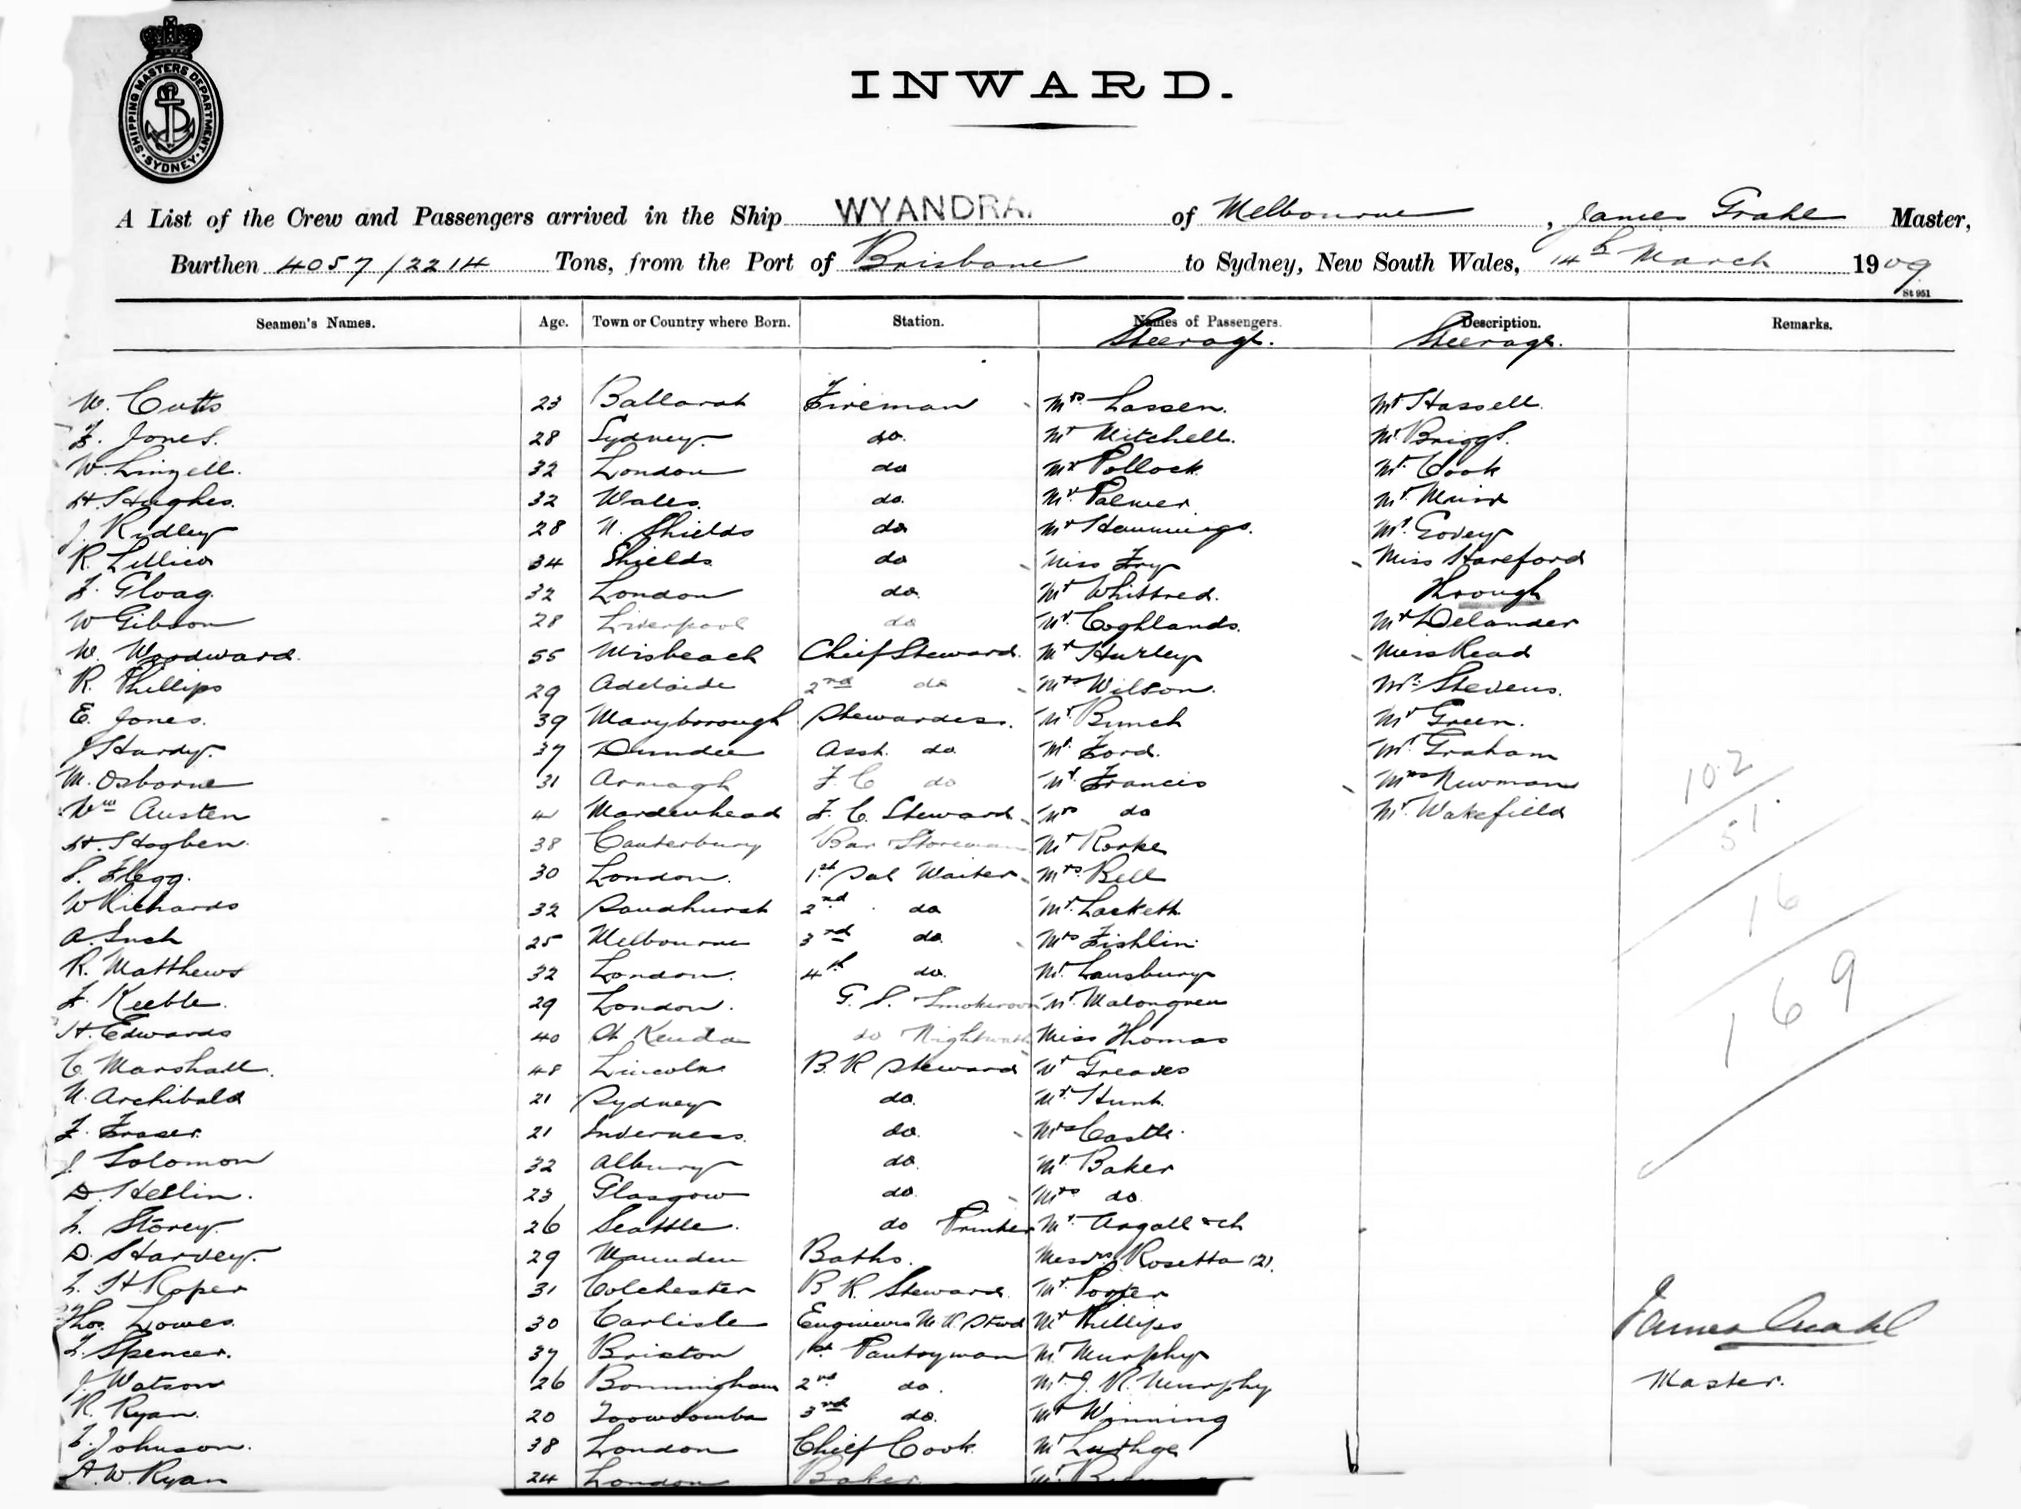 SHIPPING MASTERS DEPARTMENT · SYDNEY ·
INWARD.
A List of the Crew and Passengers arrived in the Ship WYANDRA. of Melbourne, James Grahl Master,
Burthen 4057/2214 Tons, from the Port of Brisbane to Sydney, New South Wales, 14th March 1909
St 951
Seamen's Names. Age. Town or Country where Born. Station. Names of Passengers. Description. Remarks.
Steerage. Steerage.
W. Cutts 23 Ballarat Fireman Mrs Lassen. Mr Hassell.
F. Jones. 28 Sydney. do. Mr Mitchell. Mr Briggs.
W. Linzell. 32 London do Mr Pollock Mr Cook
H. Hughes. 32 Wales. do. Mr Palmer. Mr Muir
J. Ridley 28 N. Shields do Mr Hammings. Mr Govey
R. Lillico 34 Shields do Miss Fry Miss Hareford
F. Gloag. 32 London do. Mr Whittred. Through
W Gibson 28 Liverpool do Mr Coghlands. Mr Delander
W. Woodward. 55 Wisbeach Chief Steward. Mr Hurley Miss Read
R. Phillips 29 Adelaide 2nd do Mrs Wilson. Mr Stevens.
E. Jones. 39 Maryborough Stewardess. Mr Bunch Mr Green.
J Hardy. 37 Dundee Asst. do Mr Ford. Mr Graham
M. Osborne 31 Armagh F. C do Mr Francis Mrs Newman
Wm Austen Mardenhead F. C. Steward Mrs do Mr Wakefield
H. Hogben. 38 Canterbury Bar Storeman Mr Rorke
S. Flegg. 30 London. 1st Sal Waiter Mrs Bell
W Richards 32 Sandhurst 2nd do Mr Lackett
A. Inch 25 Melbourne 3rd do. Mrs Fishlin.
R. Matthews 32 London. 4th do. Mr Lansbury
F. Keeble. 29 London. G. S. Smokeroom Mr Malongren
H. Edwards 40 St Kenda do Nightwatch Miss Thomas
C. Marshall. 48 Lincoln B. R Steward Mr Greaves
N. Archibald 21 Sydney do. Mr Hunt.
F. Fraser. 21 Inverness. do. Mrs Castle.
J. Solomon 32 Albury do. Mr Baker
D. Heslin. 23 Glasgow do Mrs do.
L. Storey. 26 Seattle. do Printer Mr Argall & ch
D. Harvey. 29 Baths. Messrs Rosetta (2).
L. H. Roper 31 Colchester B R. Steward. Mr Porter
Thos. Lowes. 30 Carlisle Engineers M. R. Stwd Mr Phillips
L. Spencer. 37 Brixton 1st Pantryman Mr Murphy
J. Watson 26 Bonningham 2nd do. Mr J. R. Murphy
R. Ryan. 20 Toowoomba 3rd do. Mr Winning
L. Johnson. 38 London Chief Cook. Mr Luthge
A. W. Ryan 24 London Baker.
102
51
16
169
James Grahl
Master.